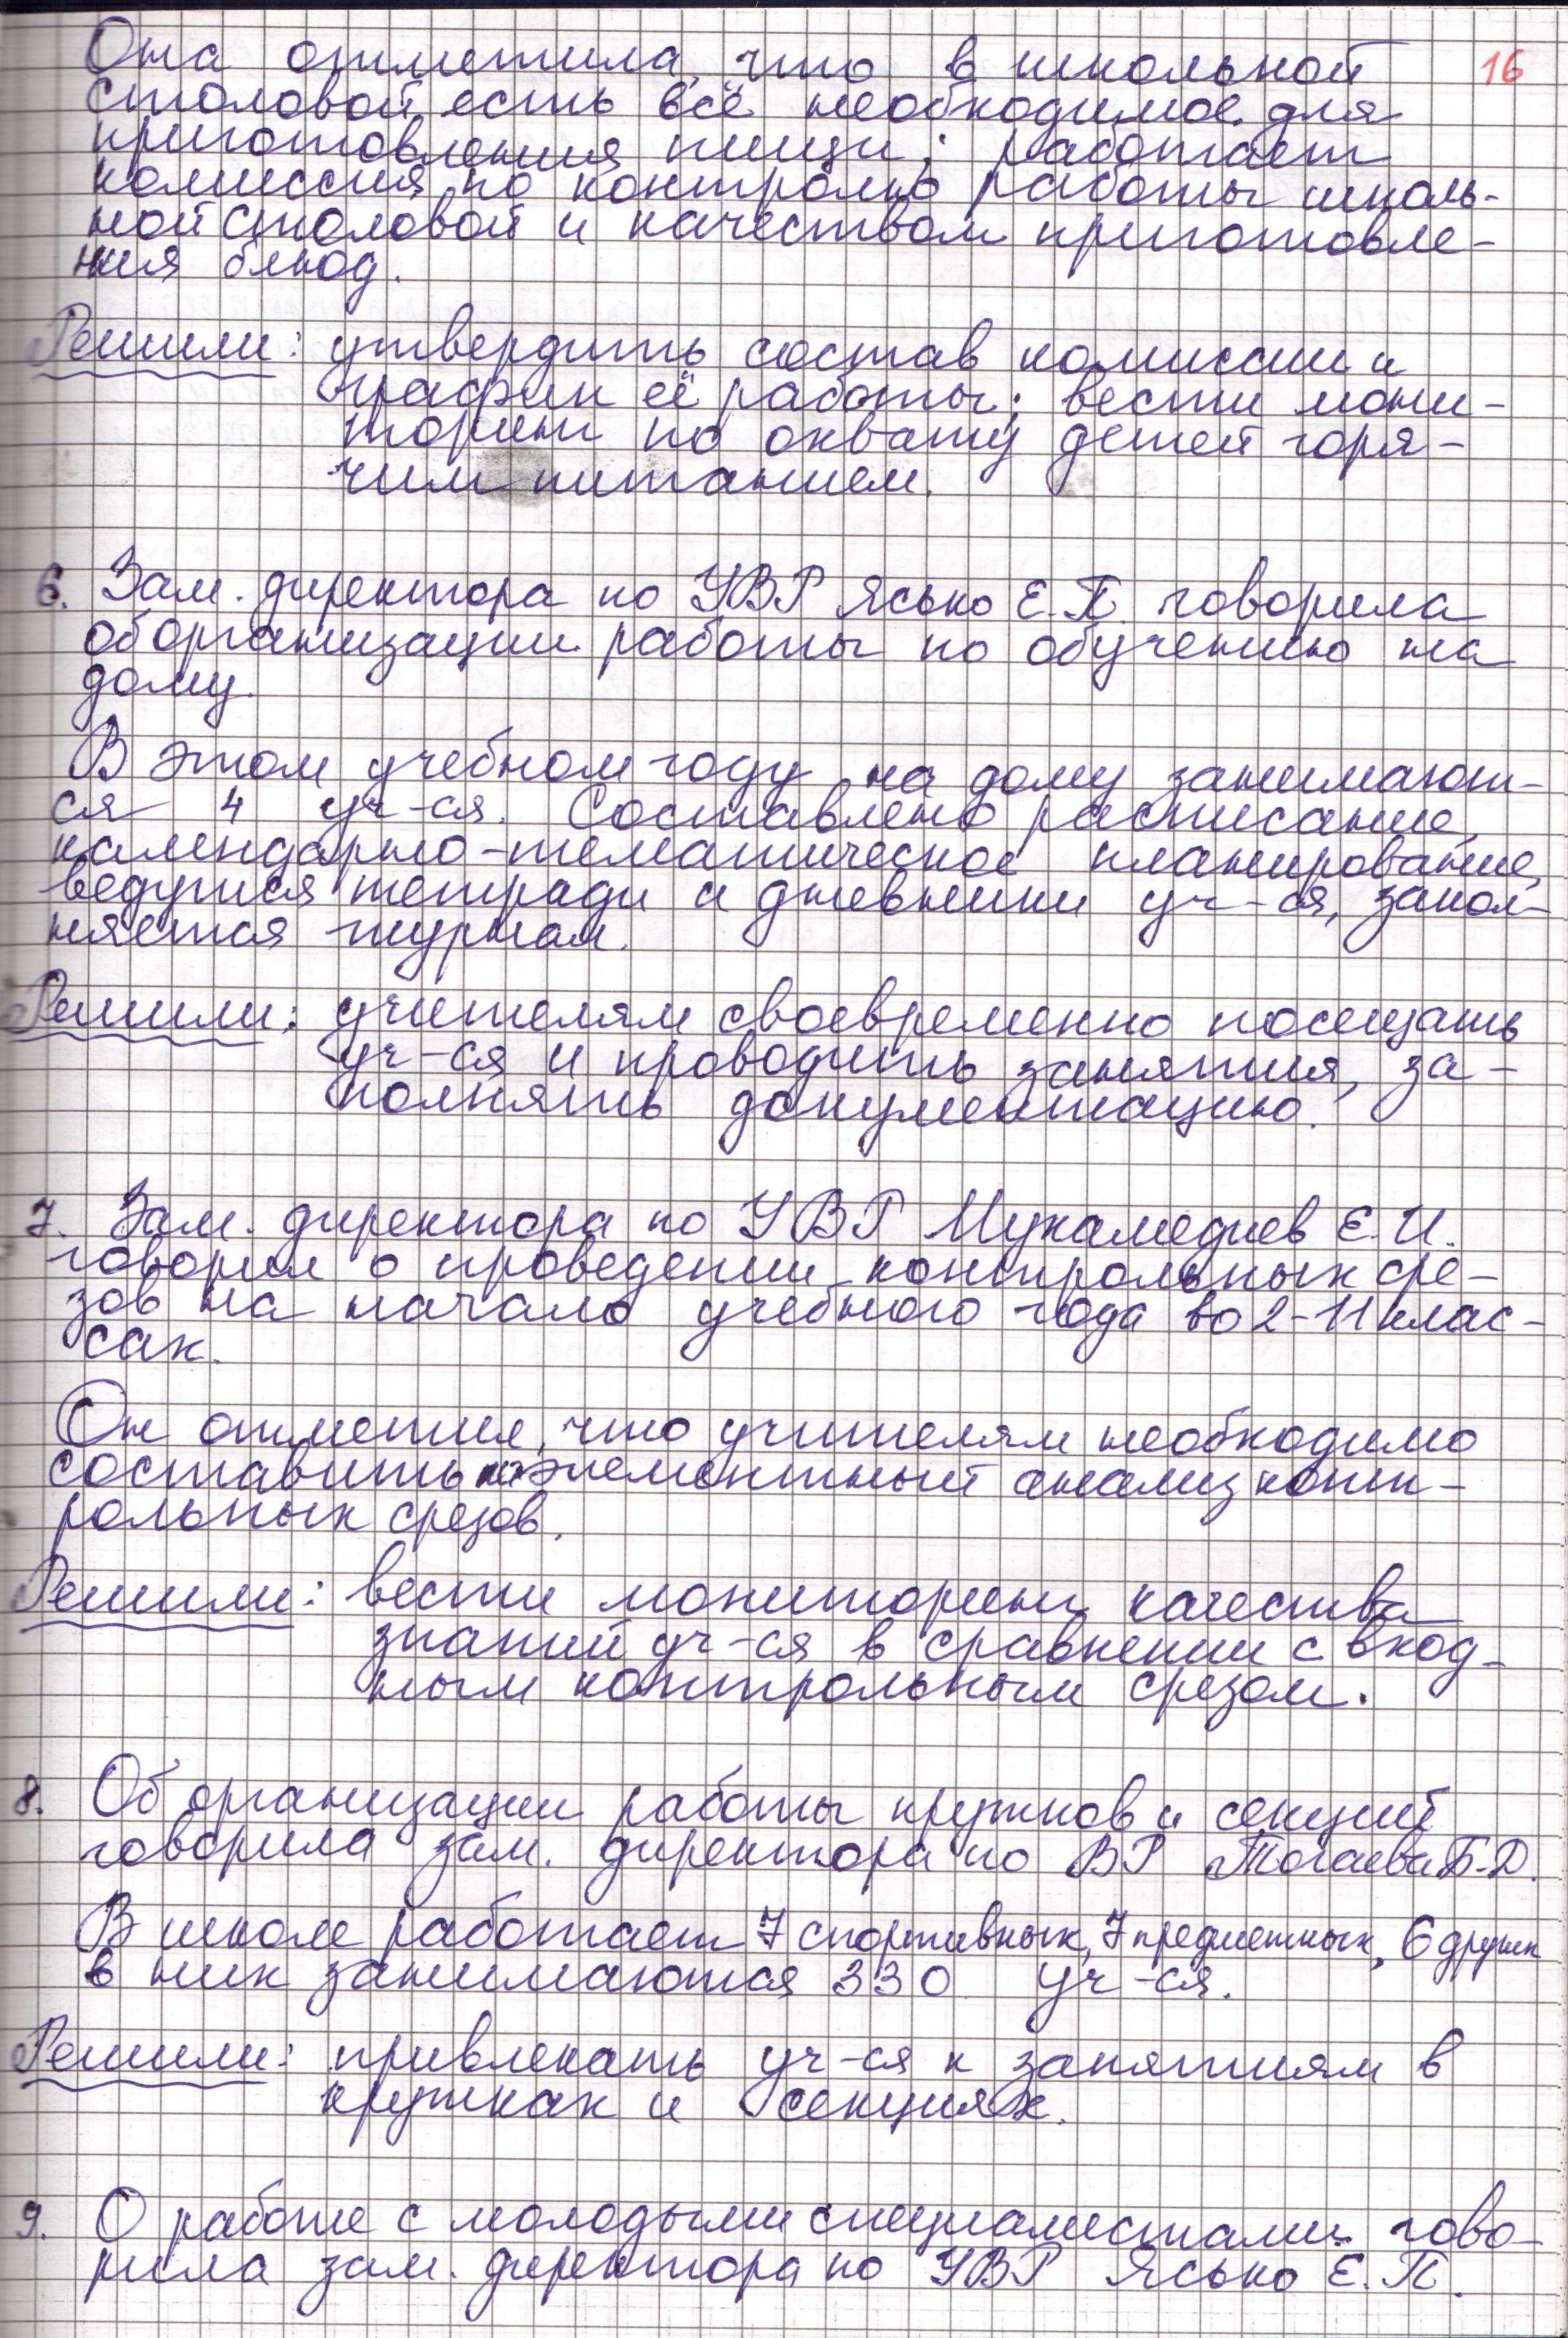 16
Она отметила, что в школьной
столовой есть всё необходимое для
приготовления пищи; работает
комиссия по контролю работы школь-
ной столовой и качеством приготовле-
ния блюд.
Решили: утвердить состав комиссии и
график её работы; вести мони-
торинг по охвату детей горя-
чим питанием.
6. Зам. директора по УВР Ясько Е.П. говорила
об организации работы по обучению на
дому.
В этом учебном году на дому занимают-
ся 4 уч-ся. Составлено расписание,
календарно-тематическое планирование,
ведутся тетради и дневники уч-ся, запол-
няется журнал.
Решили: учителям своевременно посещать
уч-ся и проводить занятия, за-
полнять документацию.
7. Зам. директора по УВР Мухамедиев Е.И.
говорил о проведении контрольных сре-
зов на начало учебного года во 2-11 клас-
сах.
Он отметил, что учителям необходимо
составить поэлементный анализ конт-
рольных срезов.
Решили: вести мониторинг качества
знаний уч-ся в сравнении с вход-
ным контрольным срезом.
8. Об организации работы кружков и секций
говорила зам. директора по ВР Тогаева Б.Д.
В школе работает 7 спортивных, 7 предметных, 6 других
в них занимаются 330 уч-ся.
Решили: привлекать уч-ся к занятиям в
кружках и секциях.
9. О работе с молодыми специалистами гово-
рила зам. директора по УВР Ясько Е.П.